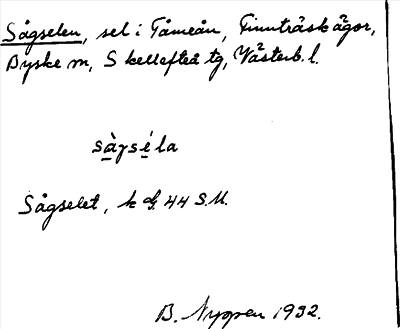 Sågselen, sel i Tåmeån, Finnträsk ägor,
Byske sn, Skellefteå tg, Västerb. l.
sàɣséla
Sågselet, k 44 S.U.
B. Nyman 1932.